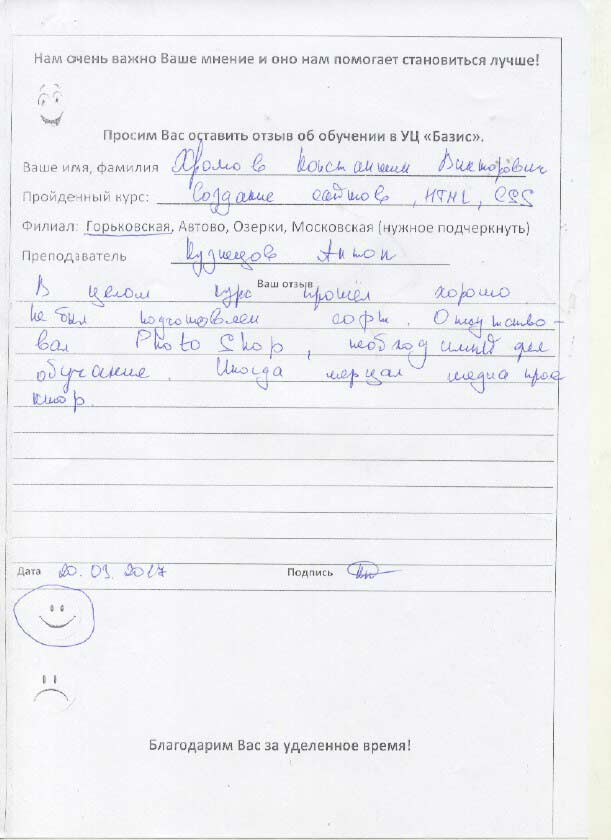 Нам очень важно Ваше мнение и оно нам помогает становиться лучше!
Просим Вас оставить отзыв об обучении в УЦ «Базис».
Ваше имя, фамилия Хромов Константин Викторович
Пройденный курс: Создание сайтов, HTML, CSS
Филиал: Горьковская, Автово, Озерки, Московская (нужное подчеркнуть)
Преподаватель Кузнецов Антон
Ваш отзыв
В целом курс прошел хорошо.
Не был подготовлен софт. Отсутство-
вал PhotoShop, необходимый для
обучания. Иногда мерцал медиа прое
ктор.
Дата 20.09.2017 Подпись
Благодарим Вас за уделенное время!